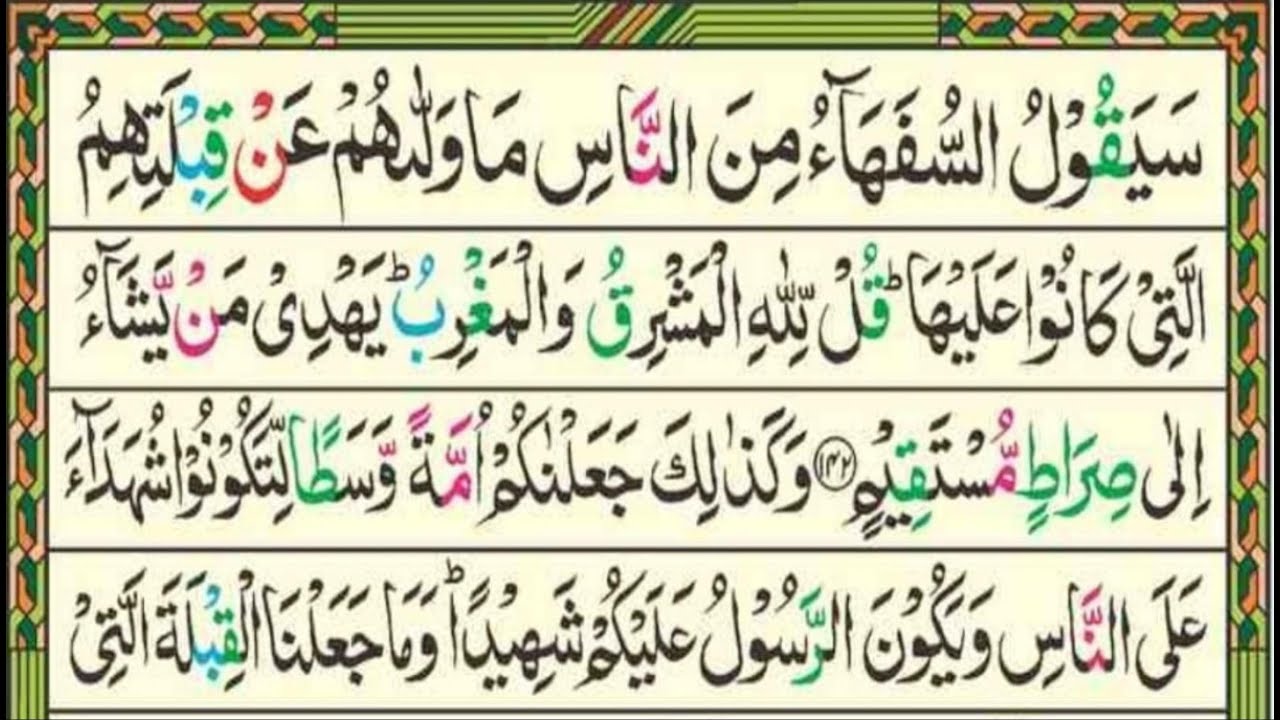 سَيَقُوْلُ السُّفَهَآءُ مِنَ النَّاسِ مَا وَلّٰىهُمْ عَنْ قِبْلَتِهِمُ
الَّتِيْ كَانُوْا عَلَيْهَا ؕ قُلْ لِّلّٰهِ الْمَشْرِقُ وَالْمَغْرِبُ ؕ يَهْدِيْ مَنْ يَّشَآءُ
اِلٰى صِرَاطٍ مُّسْتَقِيْمٍ ۝۱۴۲ وَكَذٰلِكَ جَعَلْنٰكُمْ اُمَّةً وَّسَطًا لِّتَكُوْنُوْا شُهَدَآءَ
عَلَى النَّاسِ وَيَكُوْنَ الرَّسُوْلُ عَلَيْكُمْ شَهِيْدًا ؕ وَمَا جَعَلْنَا الْقِبْلَةَ الَّتِيْ